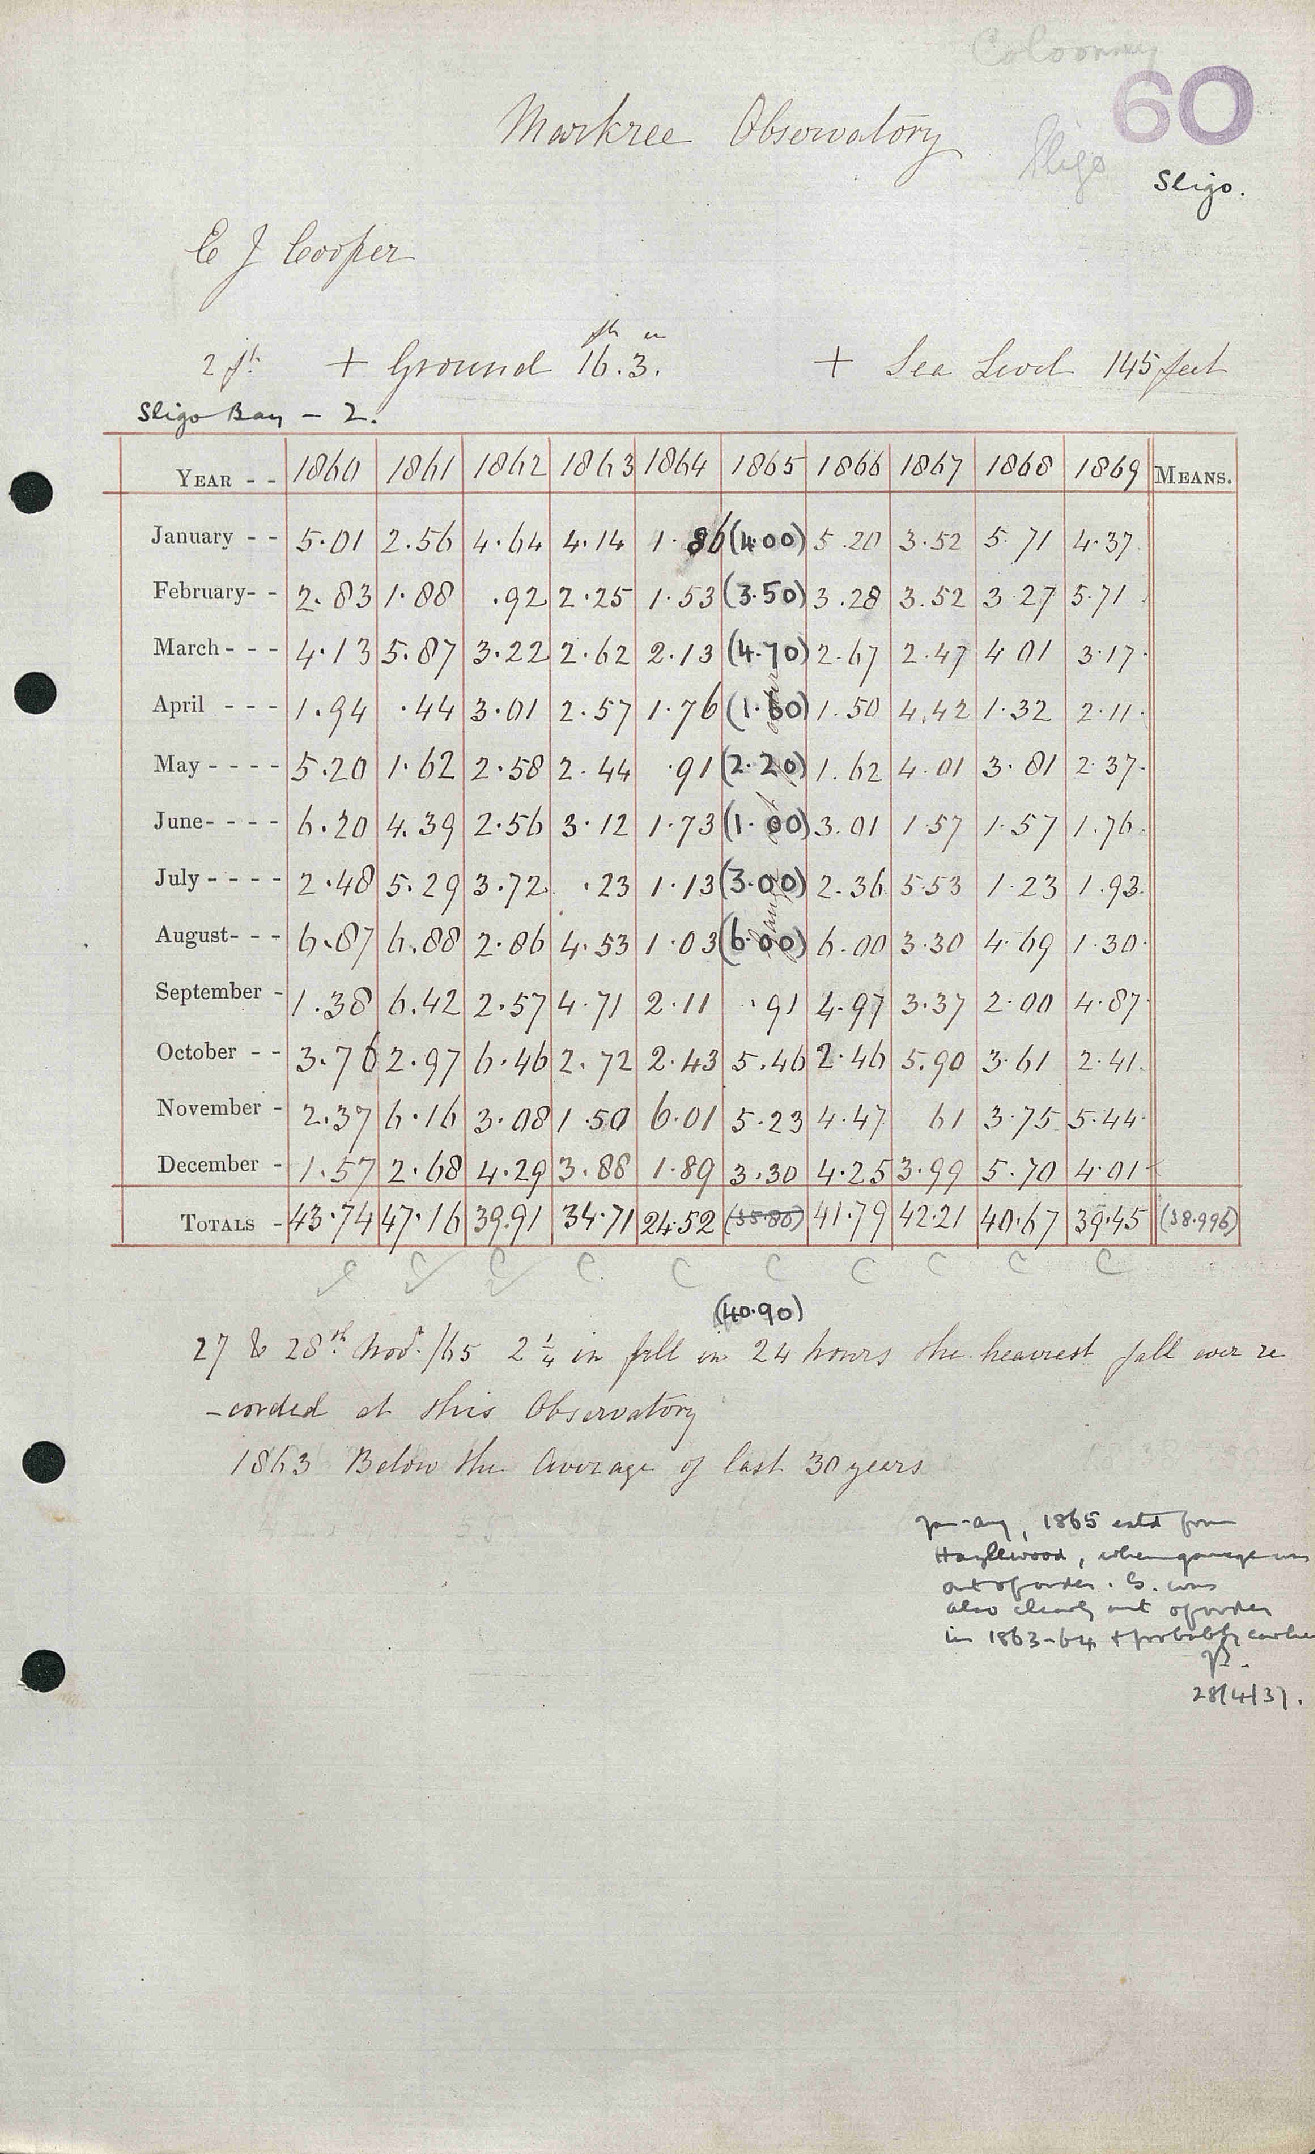 Coloonney
60
Markree Observatory
Sligo
Sligo.
E J Cooper
2 ft + Ground 16 ft. 3 in. + Sea Level 145 feet
Sligo Bay - 2.
YEAR - - 1860 1861 1862 1863 1864 1865 1866 1867 1868 1869 MEANS.
January - - 5.01 2.56 4.64 4.14 1.86 (4.00) 5.20 3.52 5.71 4.37
February- - 2.83 1.88 .92 2.25 1.53 (3.50) 3.28 3.52 3.27 5.71
March - - - 4.13 5.87 3.22 2.62 2.13 (4.70) 2.67 2.47 4.01 3.17
April - - - 1.94 .44 3.01 2.57 1.76 (1.60) 1.50 4.42 1.32 2.11
May - - - - 5.20 1.62 2.58 2.44 .91 (2.20) 1.62 4.01 3.81 2.37
June- - - - 6.20 4.39 2.56 3.12 1.73 (1.00) 3.01 1.57 1.57 1.76
July - - - - 2.48 5.29 3.72 .23 1.13 (3.00) 2.36 5.53 1.23 1.93
August- - - 6.87 6.88 2.86 4.53 1.03 (6.00) 6.00 3.30 4.69 1.30
September - 1.38 6.42 2.57 4.71 2.11 .91 4.97 3.37 2.00 4.87
October - - 3.76 2.97 6.46 2.72 2.43 5.46 2.46 5.90 3.61 2.41
November - 2.37 6.16 3.08 1.50 6.01 5.23 4.47 61 3.75 5.44
December - 1.57 2.68 4.29 3.88 1.89 3.30 4.25 3.99 5.70 4.01
TOTALS - 43.74 47.16 39.91 34.71 24.52 (35.86) 41.79 42.21 40.67 39.45 (38.996)
C C C C C C C C C C
(40.90)
27 & 28th Novr /65 2 1/4 in fell in 24 hours the heaviest fall ever re
-corded at this Observatory
1863 Below the Average of last 30 years
Jan-Aug, 1865 estd from
Hazllewood, when gauge was
out of order. G. was
also clearly out of order
in 1863-64 + probably earlier
28/4/37.